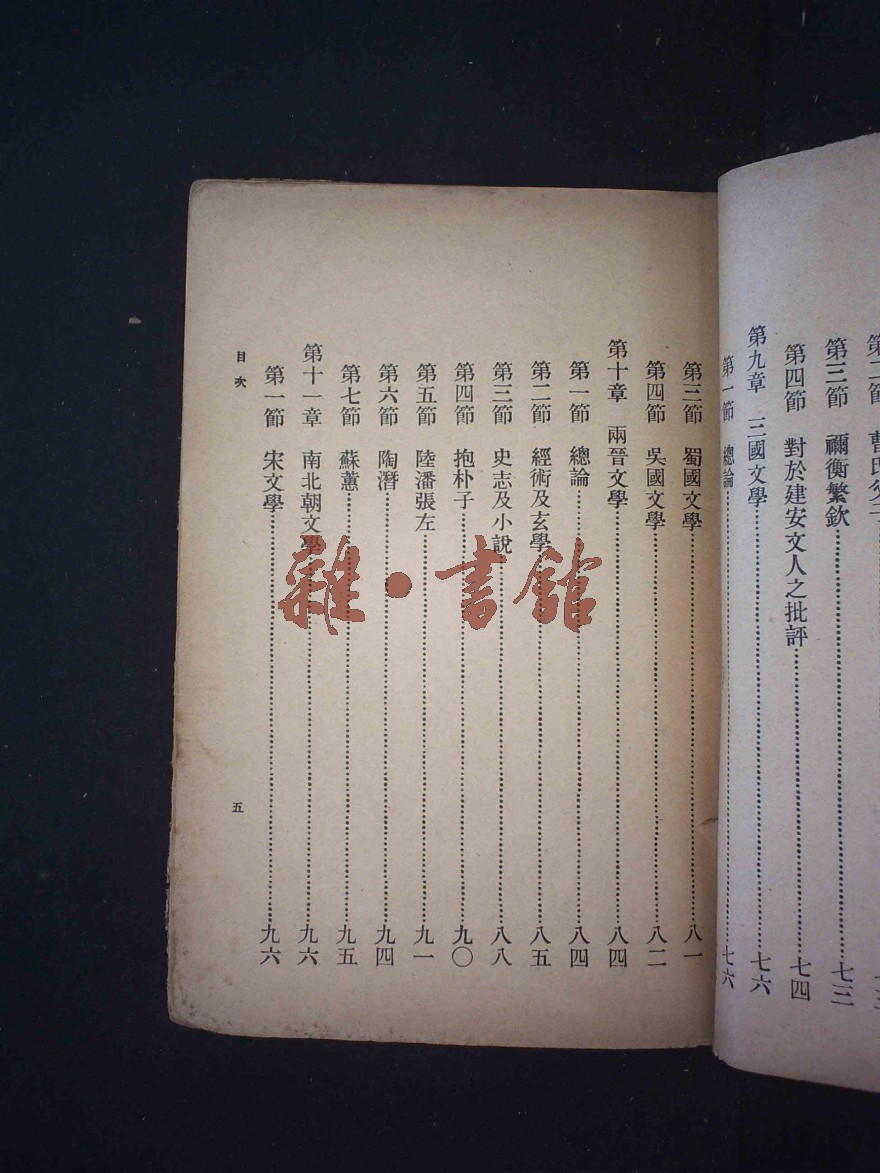 曹氏父子
第三節　禰衡繁欽……七三
第四節　對於建安文人之批評……七四
第九章　三國文學……七六
第一節　總論……七六
第三節　蜀國文學……八一
第四節　吳國文學……八二
第十章　兩晉文學……八四
第一節　總論……八四
第二節　經術及玄學……八五
第三節　史志及小說……八八
第四節　抱朴子……九〇
第五節　陸潘張左……九一
第六節　陶潛……九四
第七節　蘇蕙……九五
第十一章　南北朝文學……九六
第一節　宋文學……九六
目次
五
雜·書館